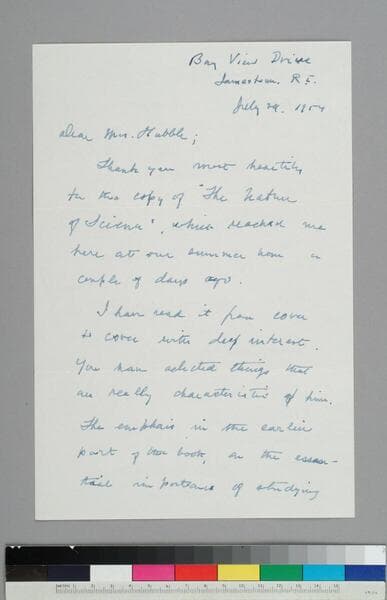 Bay View Drive
Jamestown. R.I.
July 29. 1954
Dear Mrs. Hubble;
Thank you most heartily
for the copy of "The Nature
of Science", which reached me
here at our summer home a
couple of days ago.
I have read it from cover
to cover with deep interest.
You have selected things that
are really characteristic of him.
The emphasis in the earlier
part of the book, on the essen-
tial importance of studying